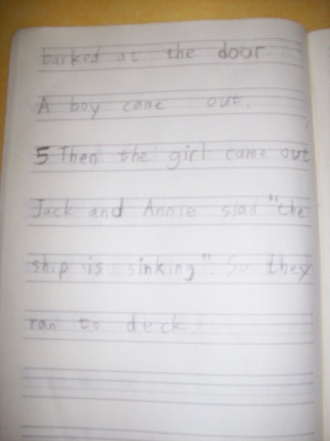 barked at the door.
A boy came out.
5 Then the girl came out
Jack and Annie siad "the
ship is sinking". So they
ran to deck.